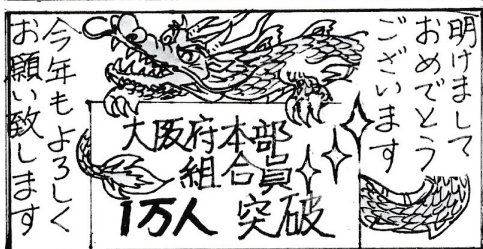 明けまして
おめでとう
ございます
大阪府本部
組合員
1万人 突破
今年もよろしく
お願い致します